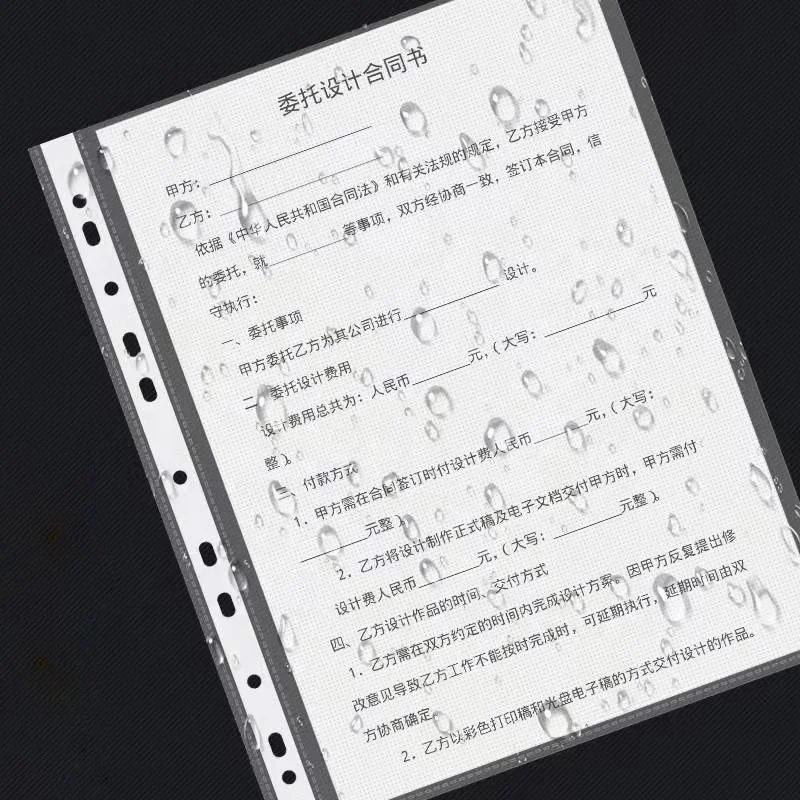 委托设计合同书
甲方：
乙方：
依据《中华人民共和国合同法》和有关法规的规定，乙方接受甲方
的委托，就__________等事项，双方经协商一致，签订本合同，信
守执行：
一、委托事项
甲方委托乙方为其公司进行__________设计。
二、委托设计费用
设计费用总共为：人民币______元，（大写：__________元
整）。
三、付款方式
1．甲方需在合同签订时付设计费人民币______元，（大写：
______元整）。
2．乙方将设计制作正式稿及电子文档交付甲方时，甲方需付
设计费人民币______元，（大写：______元整）。
四、乙方设计作品的时间、交付方式
1．乙方需在双方约定的时间内完成设计方案。因甲方反复提出修
改意见导致乙方工作不能按时完成时，可延期执行，延期时间由双
方协商确定。
2．乙方以彩色打印稿和光盘电子稿的方式交付设计的作品。